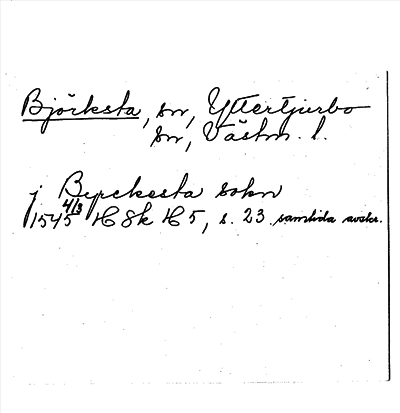 Björksta, sn, Yttertjurbo
sn, Västm. l.
j Byrckesta sokn
1545 4/3 HSk H 5, s. 23. samtida avskr.